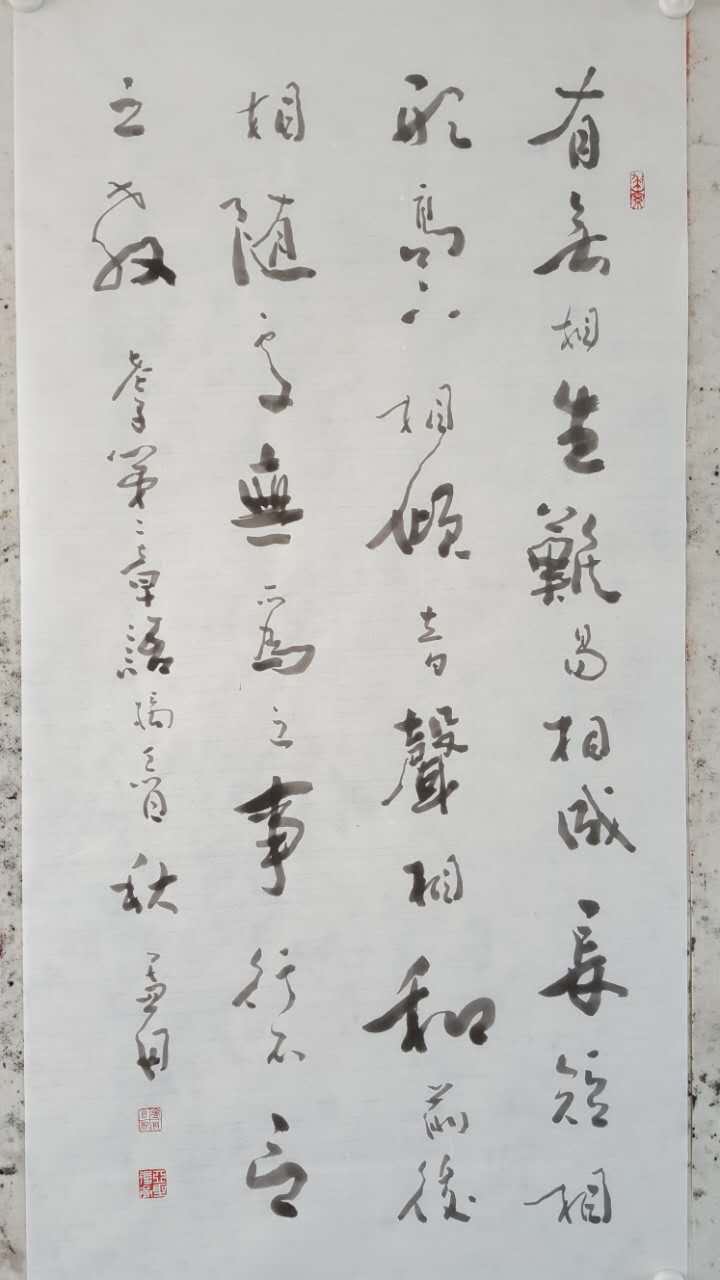 有無相生難易相成長短相
形高下相傾音聲相和前後
相随處無為之事行不言
之教 老子第二章語摘 秋